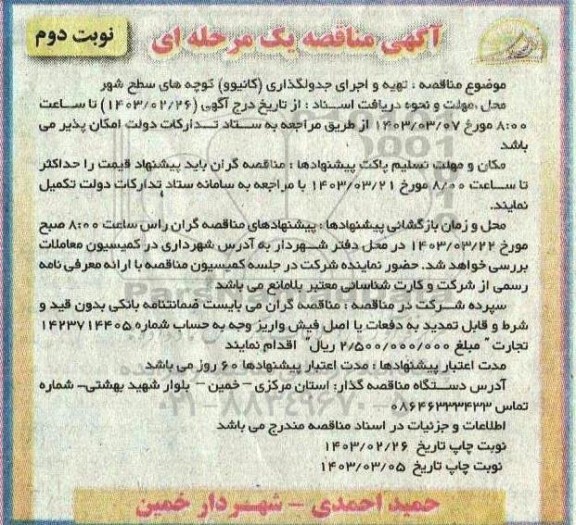 نوبت دوم
آگهی مناقصه یک مرحله ای
موضوع مناقصه : تهیه و اجرای جدولگذاری (کانیوو) کوچه های سطح شهر
محل ،مهلت و نحوه دریافت اسناد : از تاریخ درج آگهی (۱۴۰۳/۰۲/۲۶) تا ساعت
۸:۰۰ مورخ ۱۴۰۳/۰۳/۰۷ از طریق مراجعه به ستاد تدارکات دولت امکان پذیر می
باشد
مکان و مهلت تسلیم پاکت پیشنهادها : مناقصه گران باید پیشنهاد قیمت را حداکثر
تا ساعت ۸/۰۰ مورخ ۱۴۰۳/۰۳/۲۱ با مراجعه به سامانه ستاد تدارکات دولت تکمیل
نمایند.
محل و زمان بازگشائی پیشنهادها : پیشنهادهای مناقصه گران راس ساعت ۸:۰۰ صبح
مورخ ۱۴۰۳/۰۳/۲۲ در محل دفتر شهردار به آدرس شهرداری در کمیسیون معاملات
بررسی خواهد شد. حضور نماینده شرکت در جلسه کمیسیون مناقصه با ارائه معرفی نامه
رسمی از شرکت و کارت شناسائی معتبر بلامانع می باشد
سپرده شرکت در مناقصه : مناقصه گران می بایست ضمانتنامه بانکی بدون قید و
شرط و قابل تمدید به دفعات یا اصل فیش واریز وجه به حساب شماره ۱۴۲۳۷۱۴۴۰۵
تجارت " مبلغ ۲/۵۰۰/۰۰۰/۰۰۰ ریال" اقدام نمایند
مدت اعتبار پیشنهادها : مدت اعتبار پیشنهادها ۶۰ روز می باشد
آدرس دستگاه مناقصه گذار: استان مرکزی – خمین – بلوار شهید بهشتی- شماره
تماس ۰۸۶۴۶۳۳۳۴۳۳
اطلاعات و جزئیات در اسناد مناقصه مندرج می باشد
نوبت چاپ تاریخ ۱۴۰۳/۰۲/۲۶
نوبت چاپ تاریخ ۱۴۰۳/۰۳/۰۵
حمید احمدی - شهردار خمین